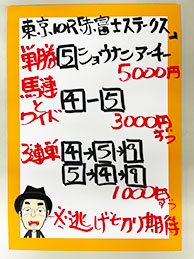 東京10R赤富士ステークス
単勝 5 ショウナンアーチー
5000円
馬連とワイド 4-5
3000円ずつ
3連単 4→5→9
5→4→9
1000円ずつ
※逃げ切り期待